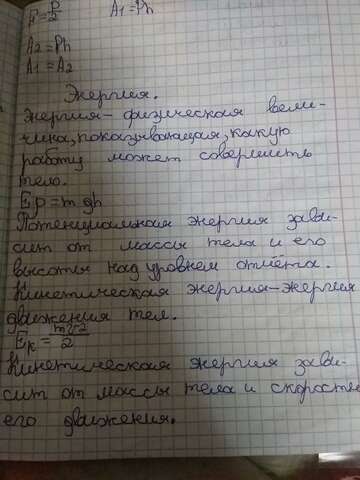 F=P/2 A1=Ph
A2=Ph
A1=A2
Энергия.
Энергия-физическая вели-
чина, показывающая, какую
работу может совершить
тело.
Ep=mgh
Потенциальная энергия зави-
сит от массы тела и его
высоты над уровнем отчёта.
Кинетическая энергия-энергия
движения тел.
Eк=mv2/2
Кинетическая энергия зави-
сит от массы тела и скорости
его движения.